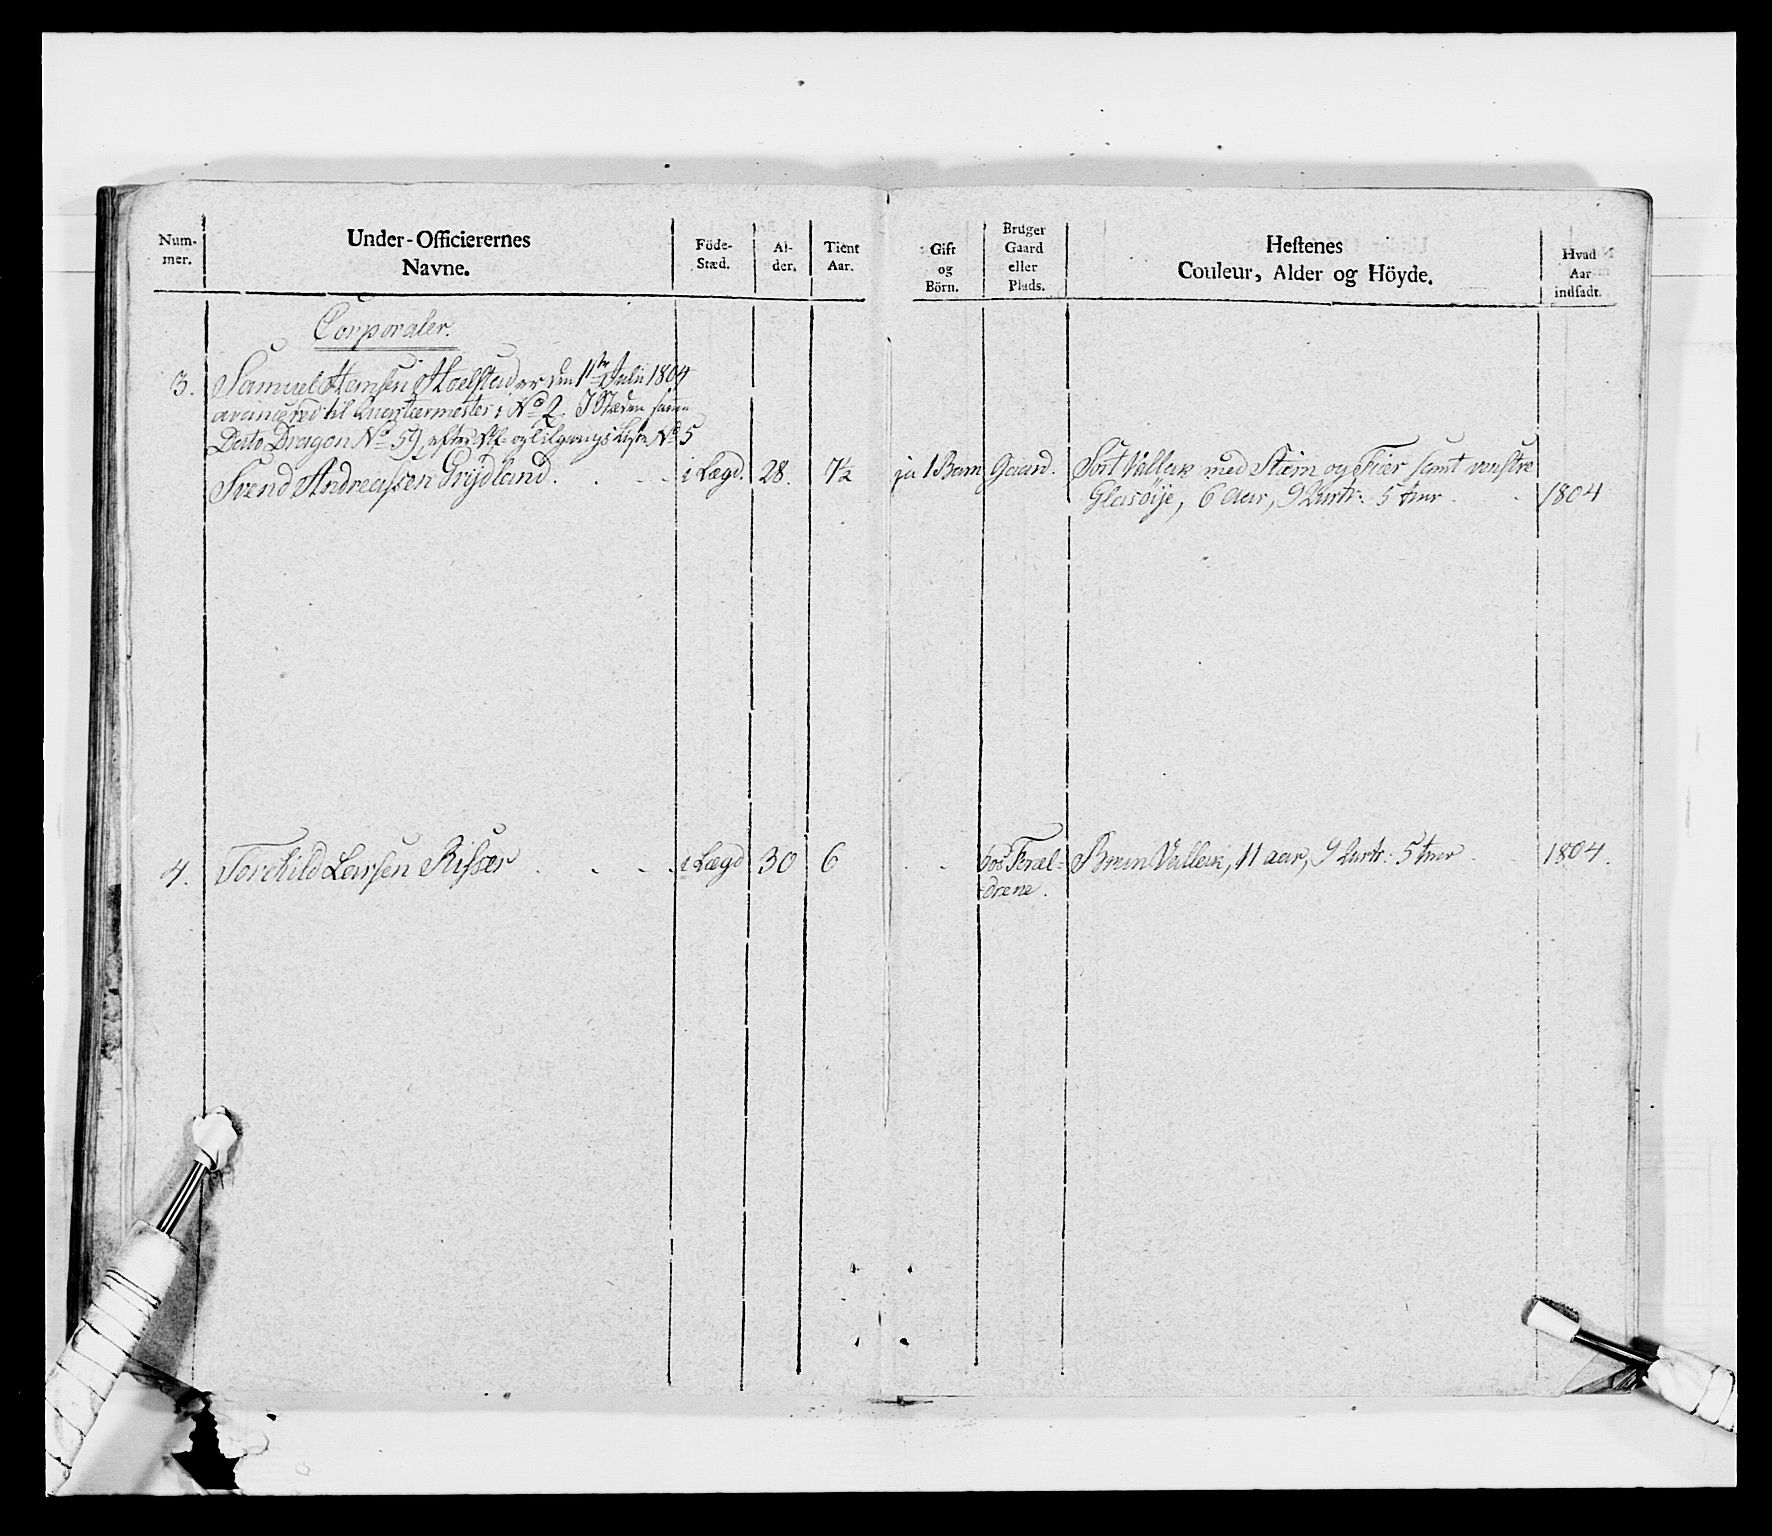 Num-
mer.
Under-Officierernes
Navne.
Föde-
Stæd.
Al-
der.
Tient
Aar.
Gift
og
Börn.
Bruger
Gaard
eller
Plads.
Hestenes
Couleur, Alder og Höyde.
Hvad
Aar
indsadt.
Corporaler.
3. Samuel Hansen Moelstad er den 11te Julii 1804
avancered til Quarteermester i No 2. I Stæden samme
Dato Dragon No 59, efter Af- og Tilgangs Liste No 5
Svend Andreassen Grijdland. i Lægd. 28. 7½ ja 1 Barn Gaard. Sort Vallak med Stiern og Fier samt venstre
Glasöije, 6 Aar, 9 Qurtr. 5 tmr 1804
4. Torchild Larsen Risser i Lægd 30 6 hos Foræl- Brun Vallak, 11 aar, 9 Qurtr. 5 tmr 1804.
drene.